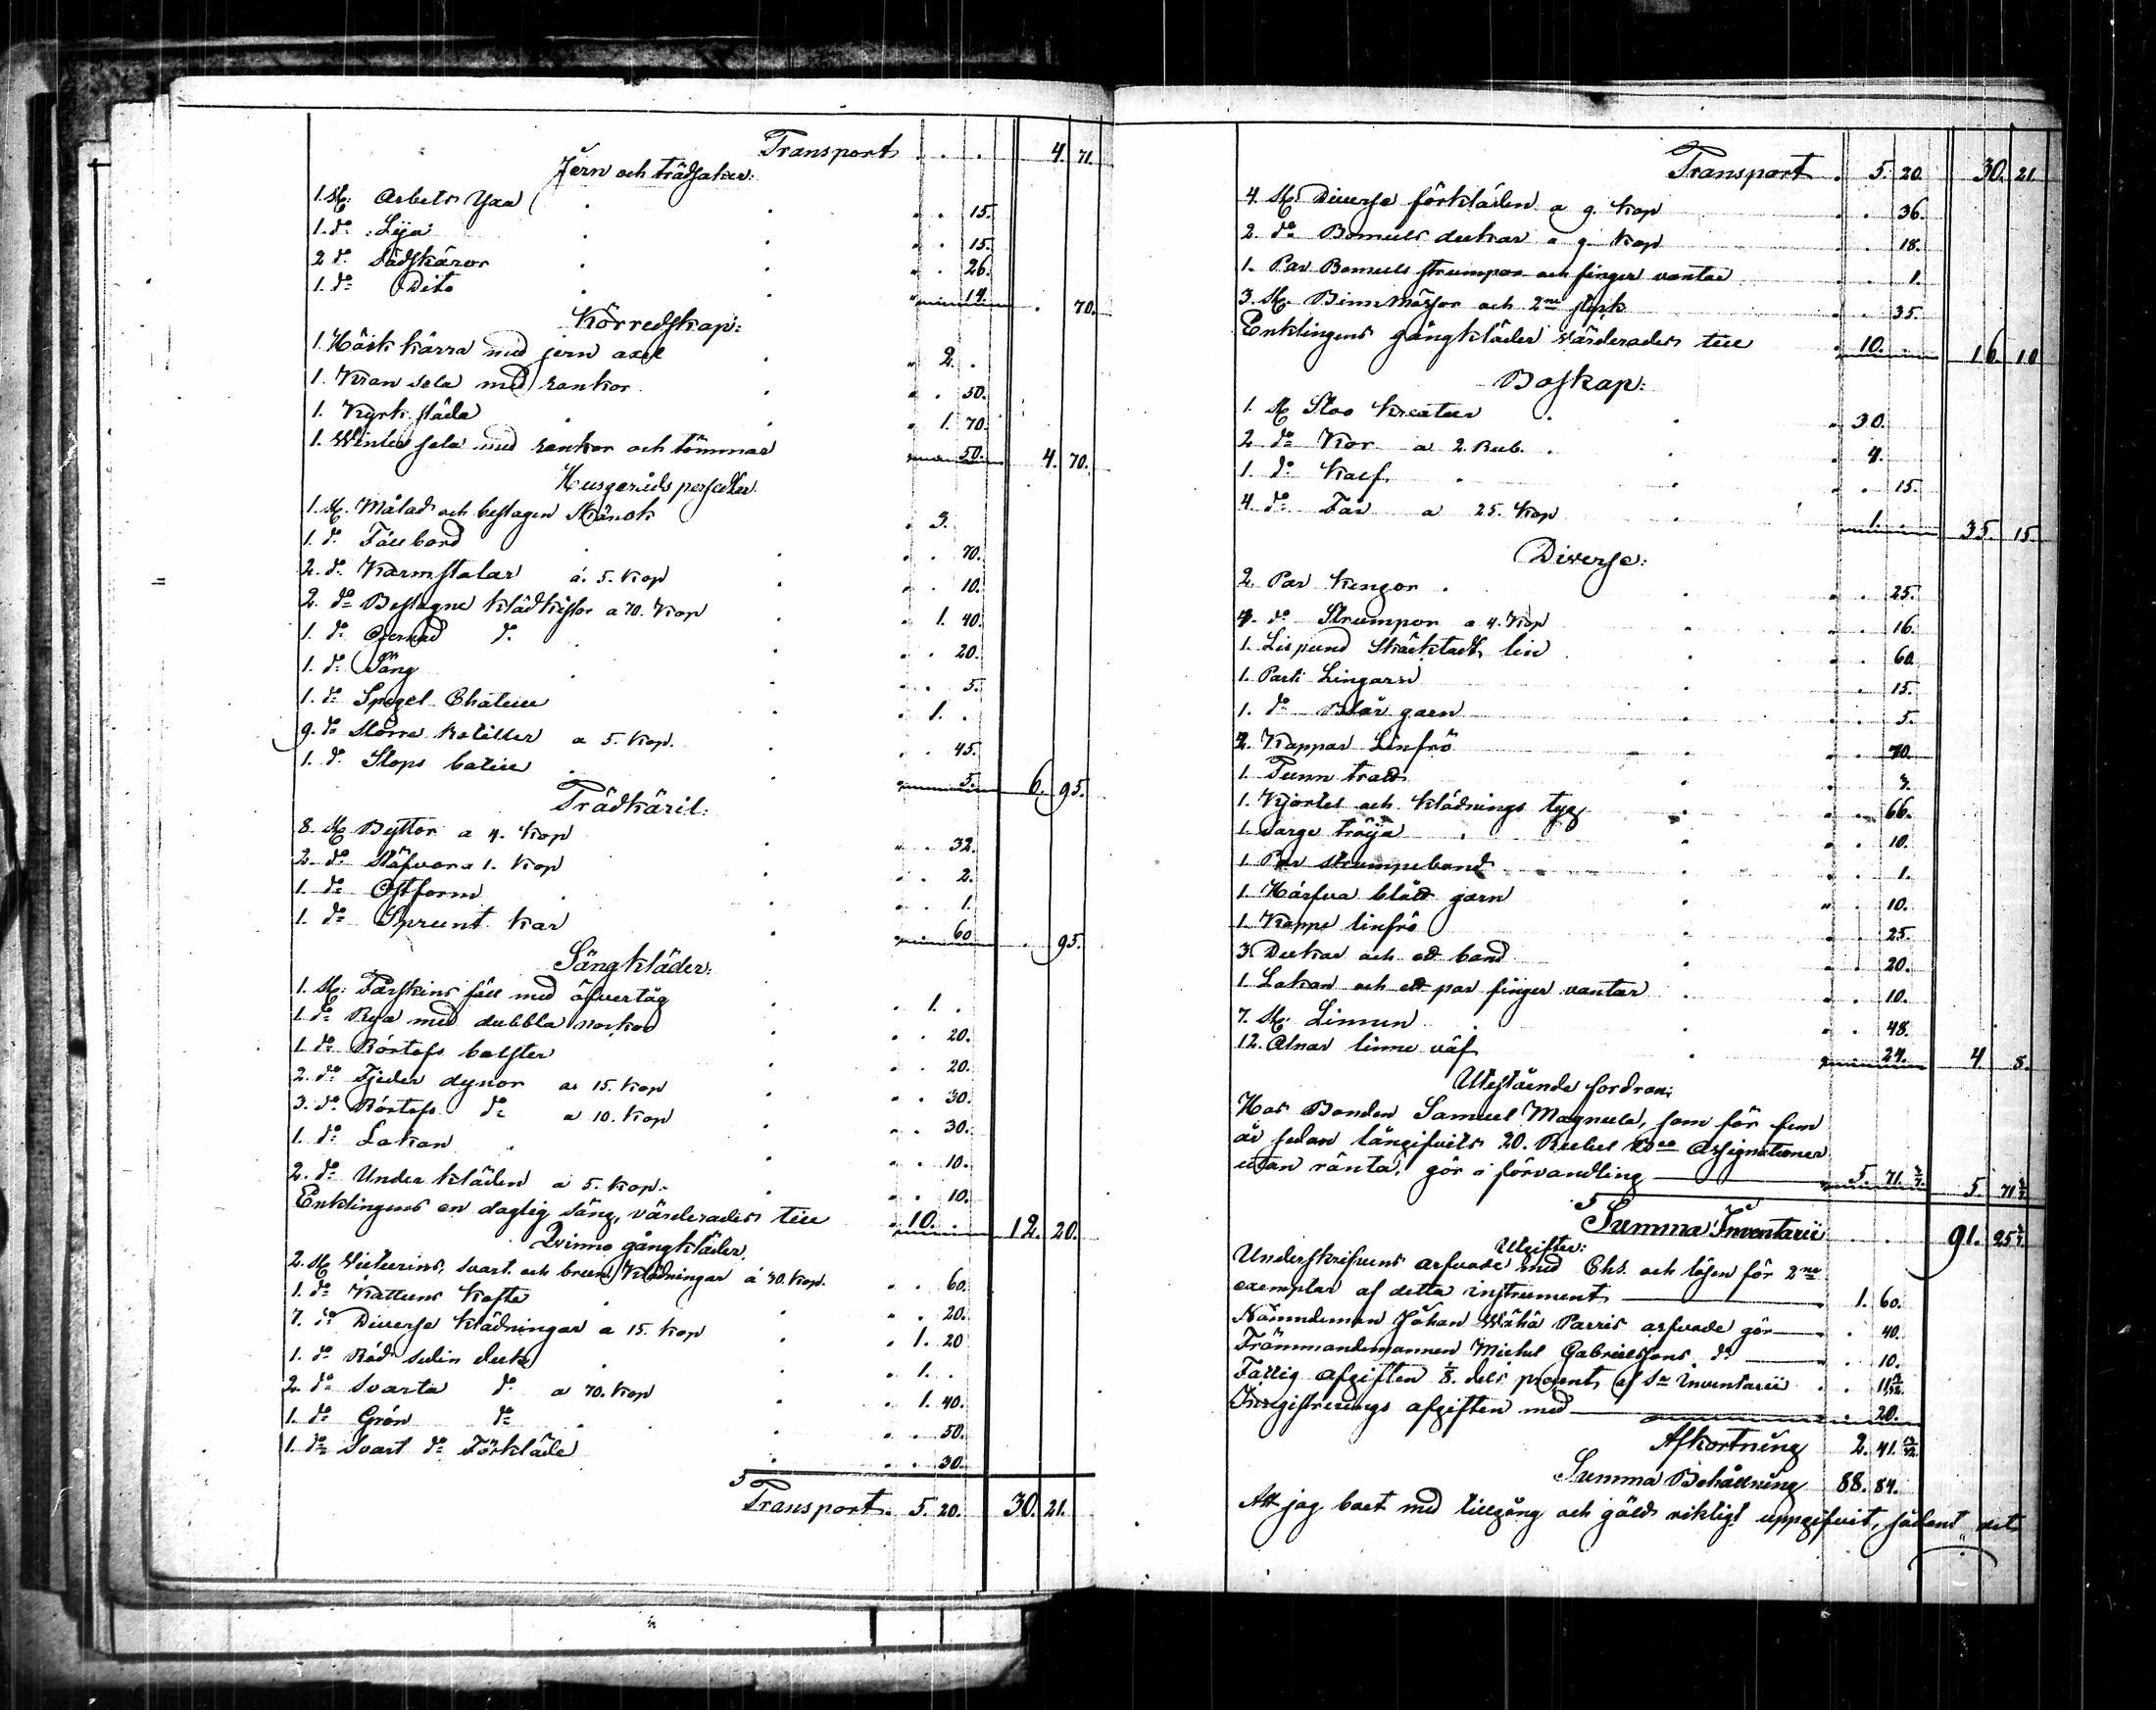 Transport . . . 4. 71.
Jern och trädsaker:
1. St: Arbets Yxa . . 15.
1. d:o Lija . . 15.
2 d:o Sädskäror . . 26.
1. d:o Dito . . 14. . 70.
Körredskap:
1. Häst kärra med jern axel . 2. .
1. Kran sela med rankor . . 50.
1. Kyrk släda . 1. 70.
1. Winter sela med rankor och tömmar . . 50. 4. 70.
Husgeråds persedlar
1. St. Målad och beslagen Skänck . 3.
1. d:o Fäll bord . . 70.
2. d:o Karmstolar á. 5. Kop . . 10.
2. d:o Beslagne klädkistor a 70. Kop . 1. 40.
1. d:o d:o . . 20.
1. d:o Säng . . 5.
1. d:o Spegel Chatull . 1. .
9. d:o Större buteller a 5. Kop. . . 45.
1. d:o Stops butell . . 5. 6. 95.
Trädkäril:
8. St Byttor a 4. Kop . . 32.
2. d:o Stäfvor a 1. Kop . . 2.
1. d:o Ostform . . 1.
1. d:o Sprunt kar . . 60 . 95.
Sängkläder:
1. St: Fårskins fäll med öfvertäg . 1. .
1. d:o Rya med dubbla nockor . . 20.
1. d:o Rörtofs bolster . . 20.
2. d:o Fjeder dynor a 15. Kop . . 30.
3. d:o Rörtofs d:o a 10. Kop . . 30.
1. d:o Lakan . . 10.
2. d:o Under kläden a 5. Kop. . . 10.
Enklingens en daglig säng, värderades till . 10. . 12. 20.
Qvinno gångkläder
2. St svart och brun Klädningar á 30. Kop. . . 60.
1. d:o Kattuns Kofta . . 20.
7. d:o Diverse klädningar a 15. Kop . 1. 20
1. d:o Röd siden duk . 1. .
2. d:o Svarta d:o a 70. Kop . 1. 40.
1. d:o Grön d:o . . 50.
1. d:o Svart d:o Förkläde . . 30.
Transport. 5. 20. 30. 21.
Transport . 5. 20. 30. 21.
4. St Diverse förkläden a 9. Kop . . 36.
2. d:o Bomuls dukar a 9. Kop . . 18.
1. Par Bomuls strumpor och finger vantar . . 1.
3. St. Binnmössor och 2ne styck . . 35.
Enklingens gångkläder värderades till . 10. . 16. 10
Boskap:
1. St Stoo Kreatur . 30.
2 d:o Kor a 2. Rub. . 4.
1. d:o Kalf . . 15.
4. d:o Får a 25. Kop . 1. . 35. 15.
Diverse:
2. Par kängor . . 25.
4. d:o Strumpor a 4. Kop . . 16.
1. Lispund Skäcktadt lin . . 60.
1. Parti Lingarn . . 15.
1. d:o Blår garn . . 5.
2. Kappar Linfrö . . 70.
1. Tunn
1. Kjortel och klädnings tyg . . 66.
1. Sarge tröja . . 10.
1 Par strumpeband . . 1.
1. Härfva blått garn . . 10.
1. Kappe linfrö . . 25.
3. Dukar och ett band . . 20.
1. Lakan och ett par finger vantar . . 10.
7. St: Linnen . . 48.
12. Alnar linne väf . . 24. 4 8.
Utestående fordran:
Hos Bonden Samuel Magnula, som för fem
år sedan långifvits 20. Rubel B:co Assignationer
utan ränta, gör i förvandling 5. 71. 3/7. 5. 71 3/7.
Summa Inventarii . . . 91. 25 3/7.
Utgifter:
Underskrifvens arfvode med Chs. och lösen för 2ne
exemplar af detta instrument . 1. 60.
Nämndeman Johan Wähä Parris arfvode gör . . 40.
Främmandemannen Michel Gabrielssons d:o . . 10.
Fattig afgiften 1/8. dels procent af S:a Inventarii . . 11 17/42.
Inregistrerings afgiften med . . 20.
Afkortning 2. 41. 17/42
Summa Behållning 88. 84.
Att jag boet med tillgång och gäld riktigt uppgifvit, sådant det